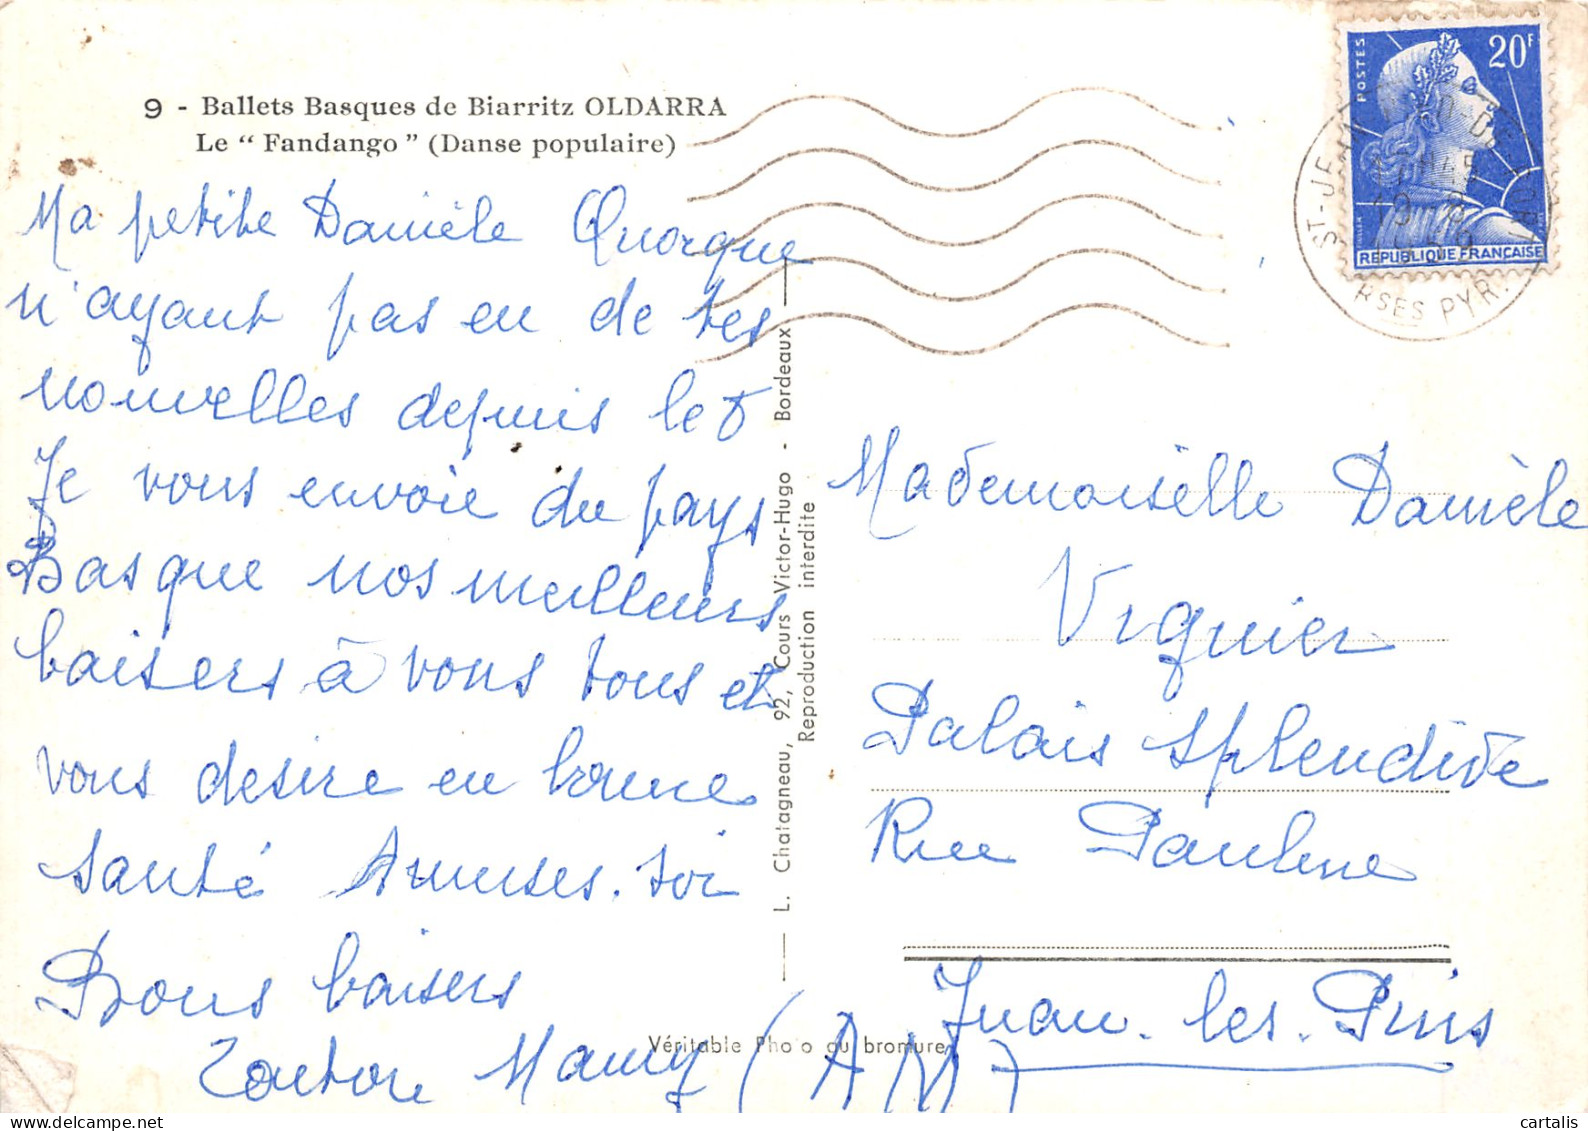 9 - Ballets Basques de Biarritz OLDARRA
Le “ Fandango ” (Danse populaire)
Ma petite Danièle Quoique
n'ayant pas eu de tes
nouvelles depuis le 5
Je vous envoie du pays
Basque nos meilleurs
baisers à vous tous et
vous desire en bonne
santé Amuses-toi
Bons baisers
Tonton Mamy (AM)
L. Chatagneau, 92, Cours Victor-Hugo - Bordeaux
Reproduction interdite
Véritable Photo au bromure
POSTES
20F
REPUBLIQUE FRANÇAISE
ST-JEAN PIED-DE-PORT
BSES PYR.
Mademoiselle Danièle
Viguier
Palais Splendide
Rue Pauline
Juan-les-Pins
cartalis